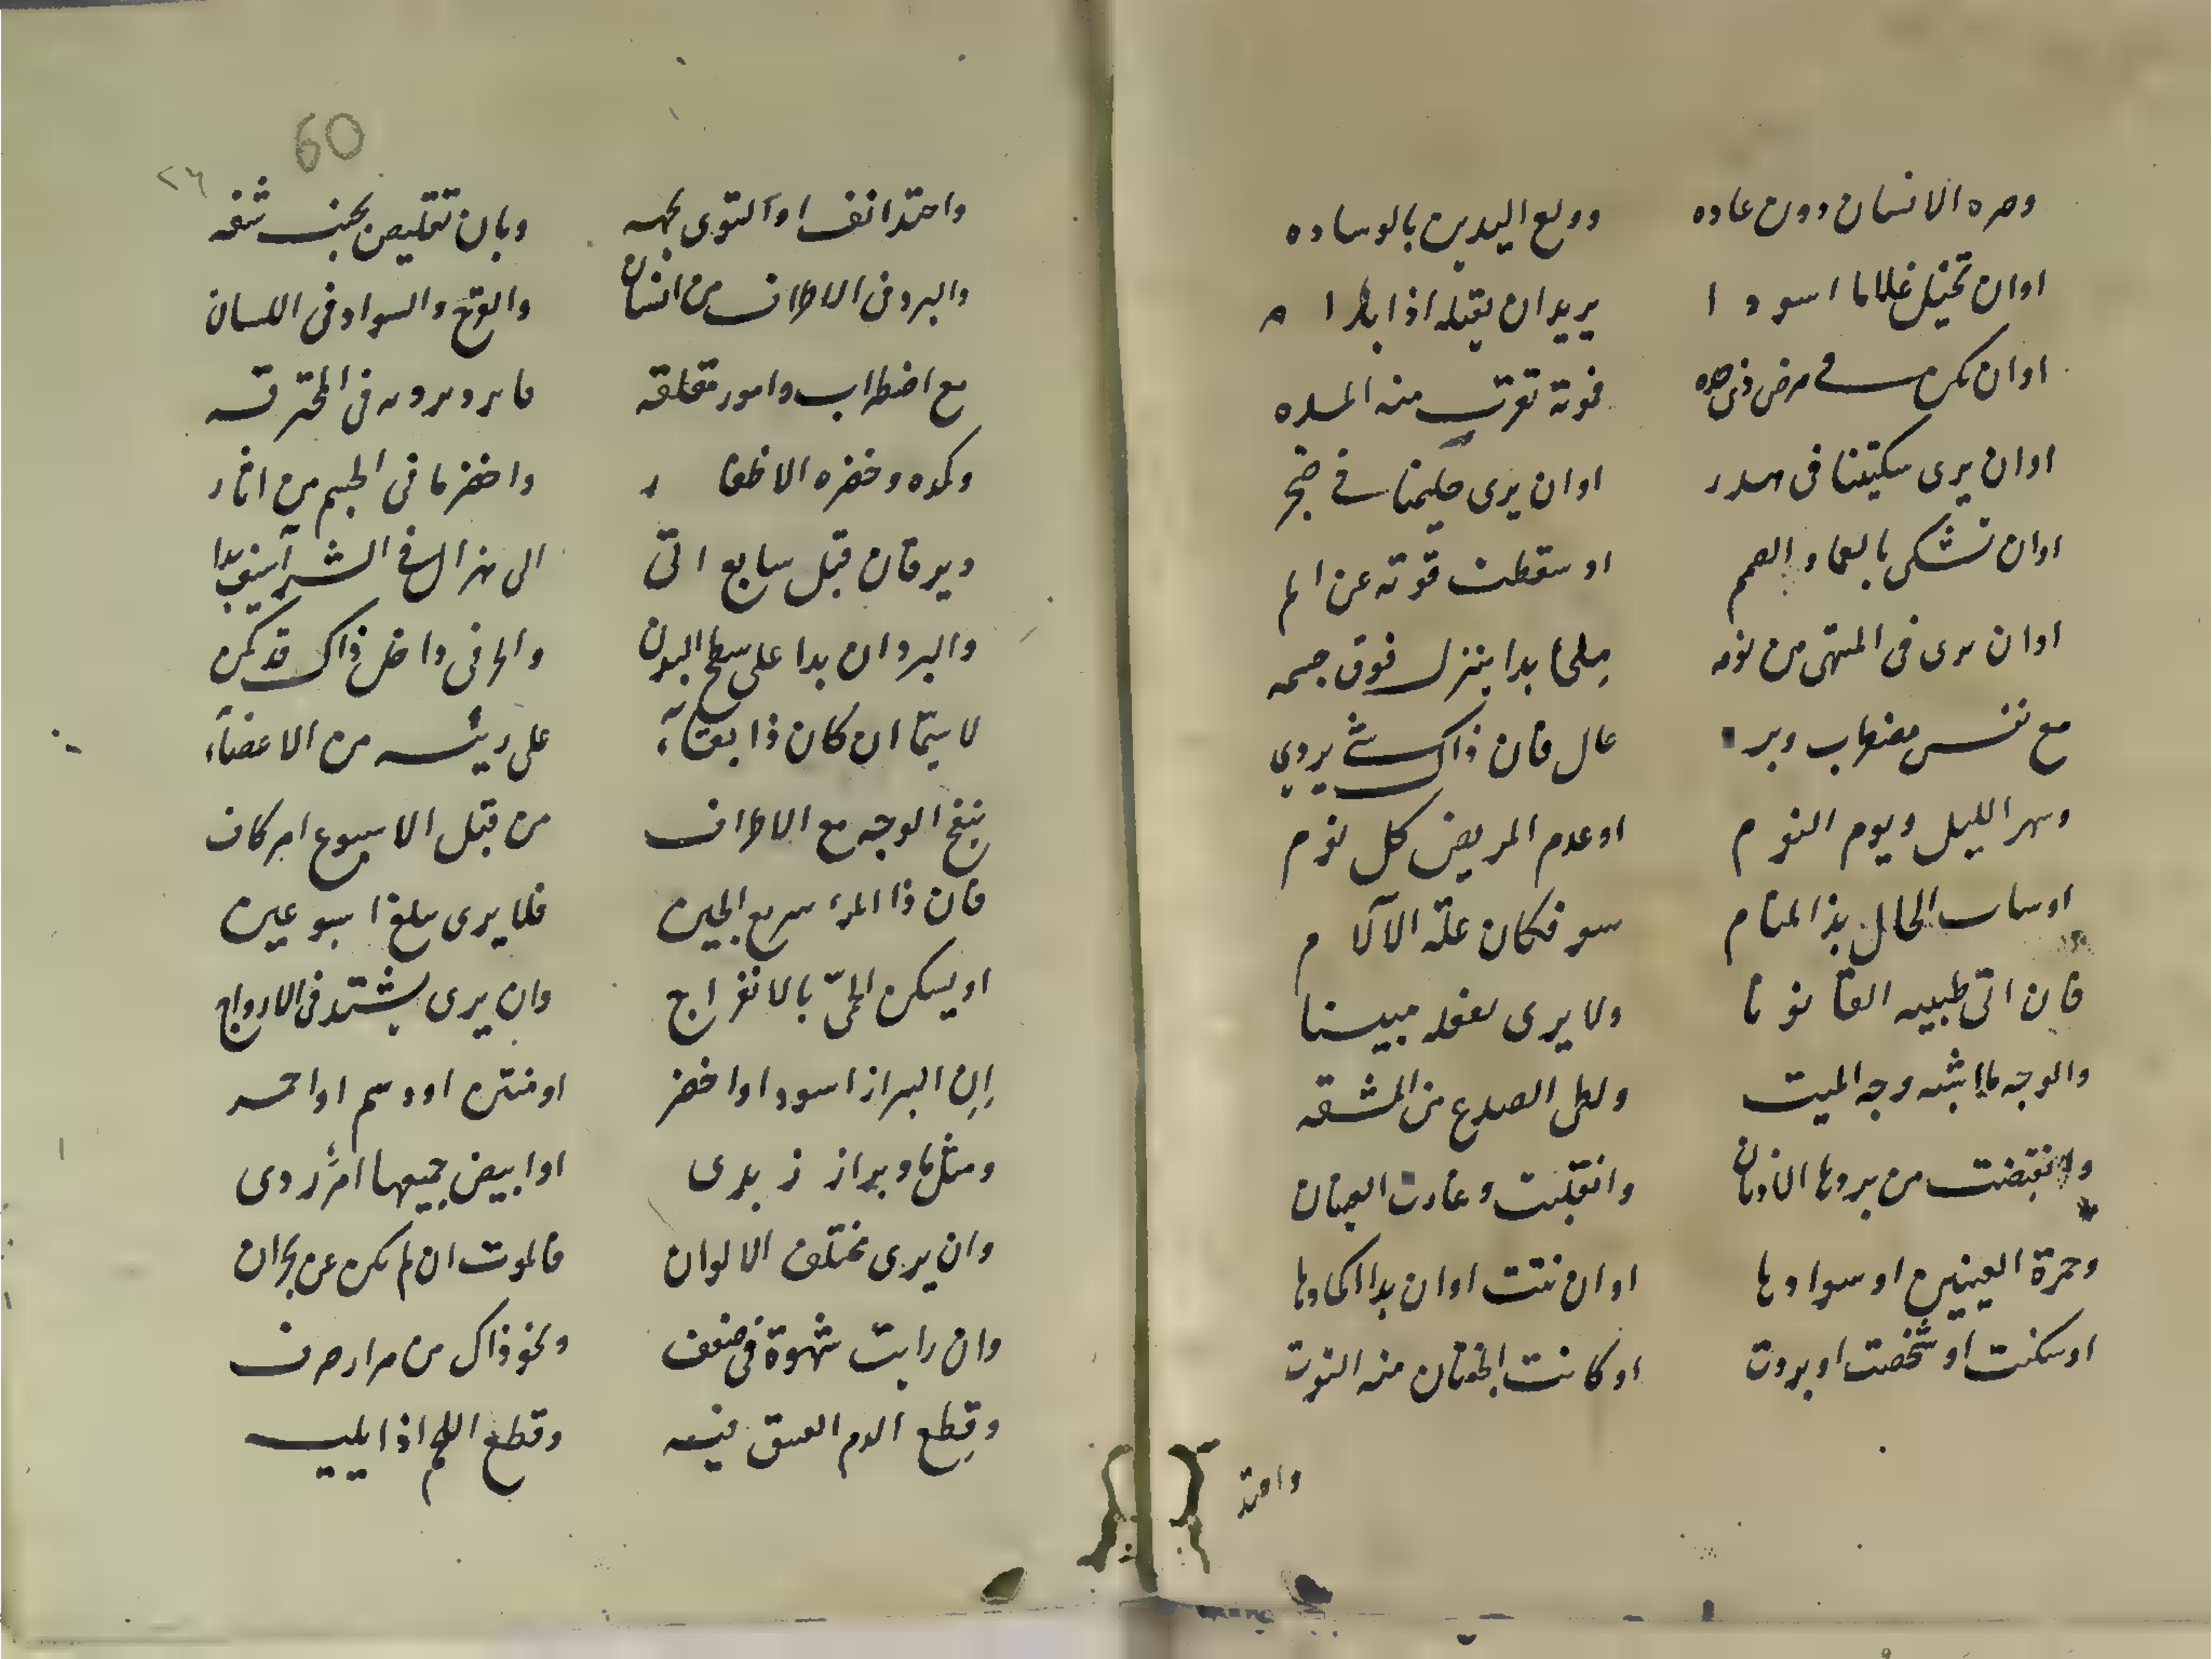 وصره الانسان دون عاده وولع اليدين بالوساده
اوان تخيل غلاما اسودا يريد ان يقتله اذا بدا
اوان يكن في مرض ذي حده فموته تقرب منه المده
اوان يرى سكيتنا في هدر اوان يرى حليمنا في ضجر
اوان تشكى بالعما والصمم او سقطت قوته عن الم
اوان يرى في المنتهى من نومه ملحا بدا ينزل فوق جسمه
مع نفس مضطرب وبرد عال فان ذاك شئ يردي
وسهر الليل ويوم النوم اوعدم المريض كل نوم
اوسات الحال بذا المنام سو فكان علة الالام
فان اتى طبيبه القانونا ولا يرى لفعله مبينا
والوجه ما اشبه وجه الميت ولطى الصدع من المشقه
وانقبضت من بردها الاذنان وانقلبت وغارت العينان
وحمرة العينين او سوادها اوان نتت اوان بدا اكمادها
اوسكنت اوشخصت اوبردت اوكانت الجفنان منه التوت
واحتد
60
٢٦
واحتد انفا والتوى بجهه وبان تقليص بجنب شفه
والبرد في الاطراف من انسان والقرح والسواد في اللسان
مع اضطراب وامور مقلقه ما برد بروده في المحترقه
وكمده وخضره الاظفار واخضر ما في الجسم من اثار
ويرقان قبل سابع اتى الى هزال في الشراسيف بدا
والبرد ان بدا على سطح البدن والحر في داخل ذاك قد كمن
لا سيما ان كان ذا بقاء على رئيسه من الاعضاء
ينفخ الوجه مع الاطراف من قبل الاسبوع امر كاف
فان ذا المرء سريع الحين فلا يرى يبلغ اسبوعين
اويسكن الحمى بالانفراج وان يرى يشتد في الازواج
ان البراز اسود اواخضر اومنتن اودسم اواحمر
ومثل ما وبراز زبدى اوابيض جميعها امر ردى
وان يرى مختلف الالوان فالموت ان لم يكن عن بحران
وان رايت شهوة في ضعف ونحو ذاك من مرار صرف
وقطع الدم العبيق فيه وقطع اللحم اذا يليه